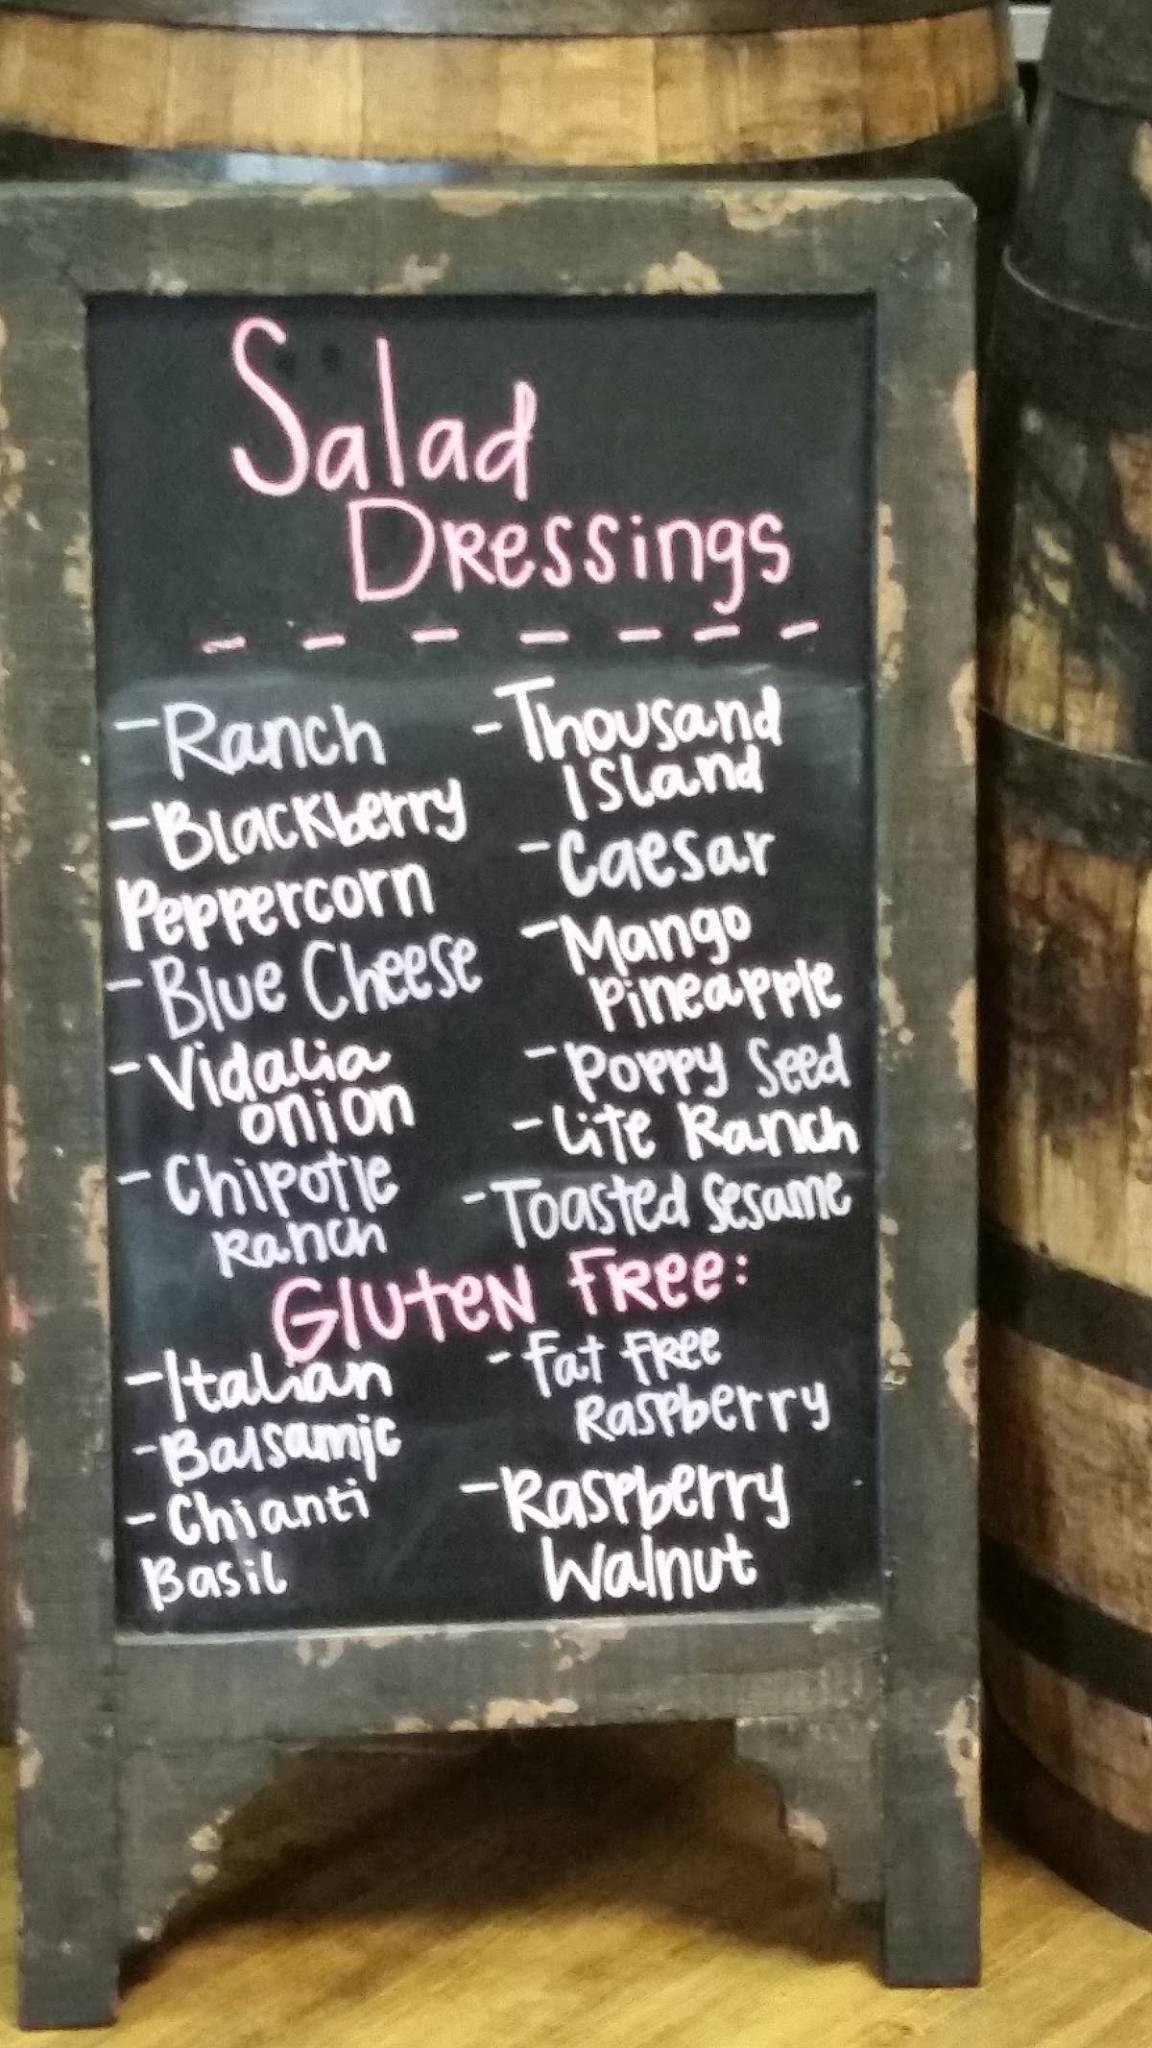 Salad
Dressings
- - - - - - -
-Ranch
-Blackberry
Peppercorn
-Blue Cheese
-Vidalia
onion
-Chipotle
Ranch
-Thousand
Island
-Caesar
-Mango
Pineapple
-Poppy Seed
-Lite Ranch
-Toasted Sesame
Gluten Free:
-Italian
-Balsamic
-Chianti
Basil
-Fat Free
Raspberry
-Raspberry
Walnut